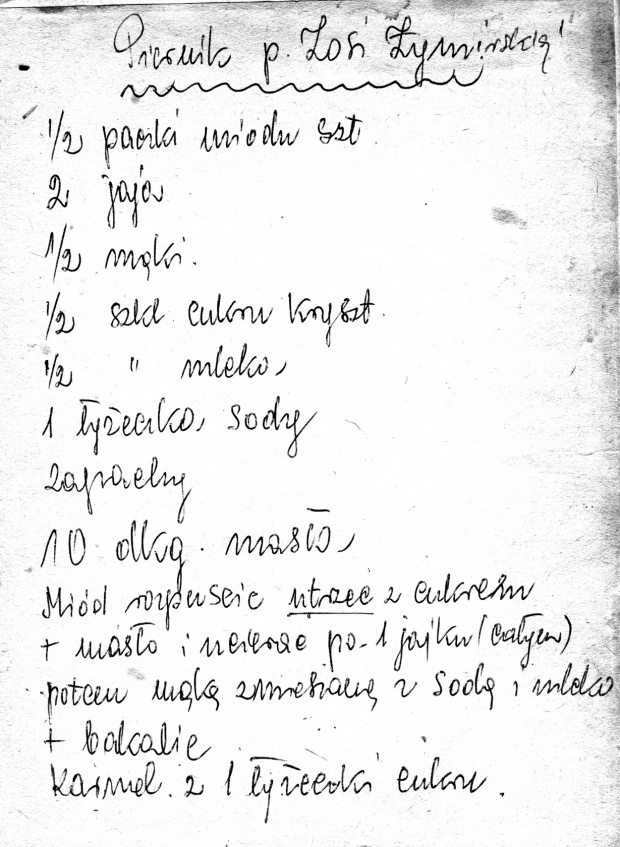 Piernik p. Zosi Żymirskiej
1/2 paczki miodu szt
2 jaja
1/2 mąki.
1/2 szkl cukru kryszt.
1/2 " mleka
1 łyżeczka sody
zapachy
10 dkg. masła
Miód rozpuścić utrzeć z cukrem
+ masło i ucierać po 1 jajku (całym)
potem mąką zmieszaną z sodą i mleko
+ bakalie
Karmel. z 1 łyżeczki cukru.